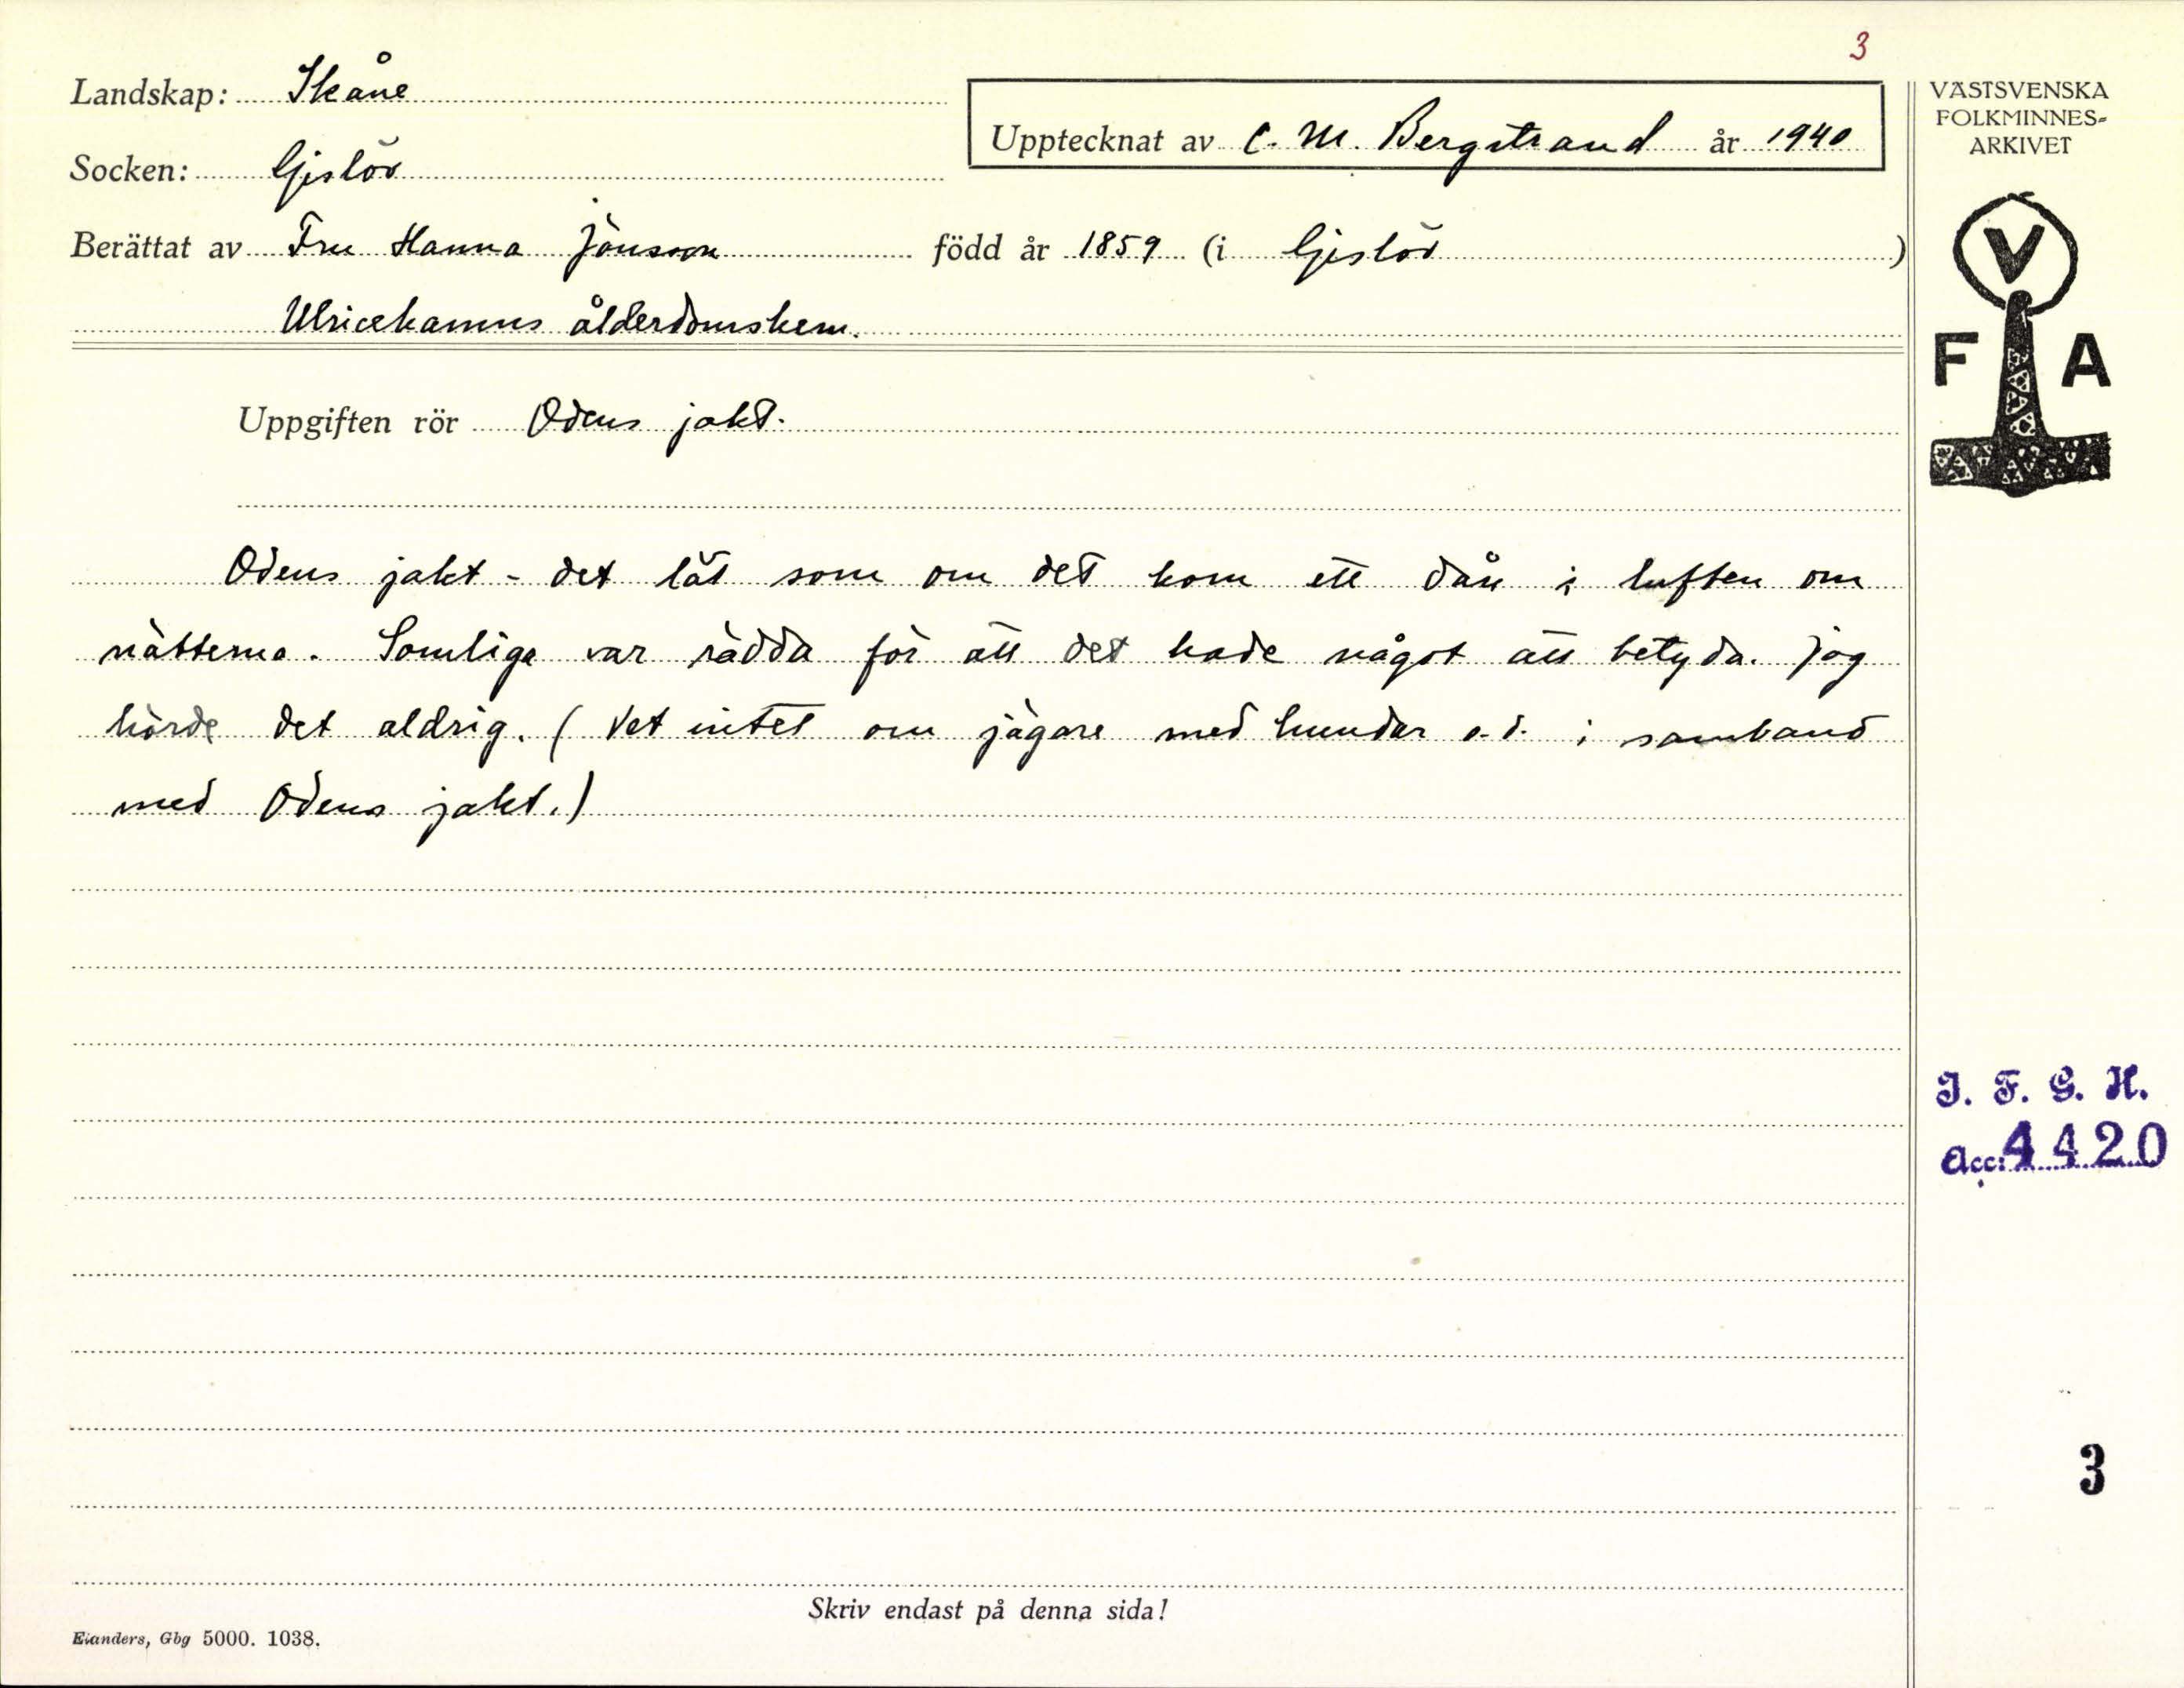 3
Landskap: Skåne
Upptecknat av C. M. Bergstrand år 1940
Socken: Gislöv
Berättat av Fru Hanna Jönsson född år 1859 (i Gislöv)
Ulricehamns ålderdomshem.
Uppgiften rör Odens jakt.
Odens jakt - det lät som om det kom ett dån i luften om
nätterna. Somliga var rädda för att det hade något att betyda. Jag
hörde det aldrig. (Vet intet om jägare med hundar o. d. i samband
med Odens jakt.)
Skriv endast på denna sida!
Elanders, Gbg 5000. 1038.
VÄSTSVENSKA
FOLKMINNES-
ARKIVET
V
F A
I. F. G. H.
Acc: 4420
3